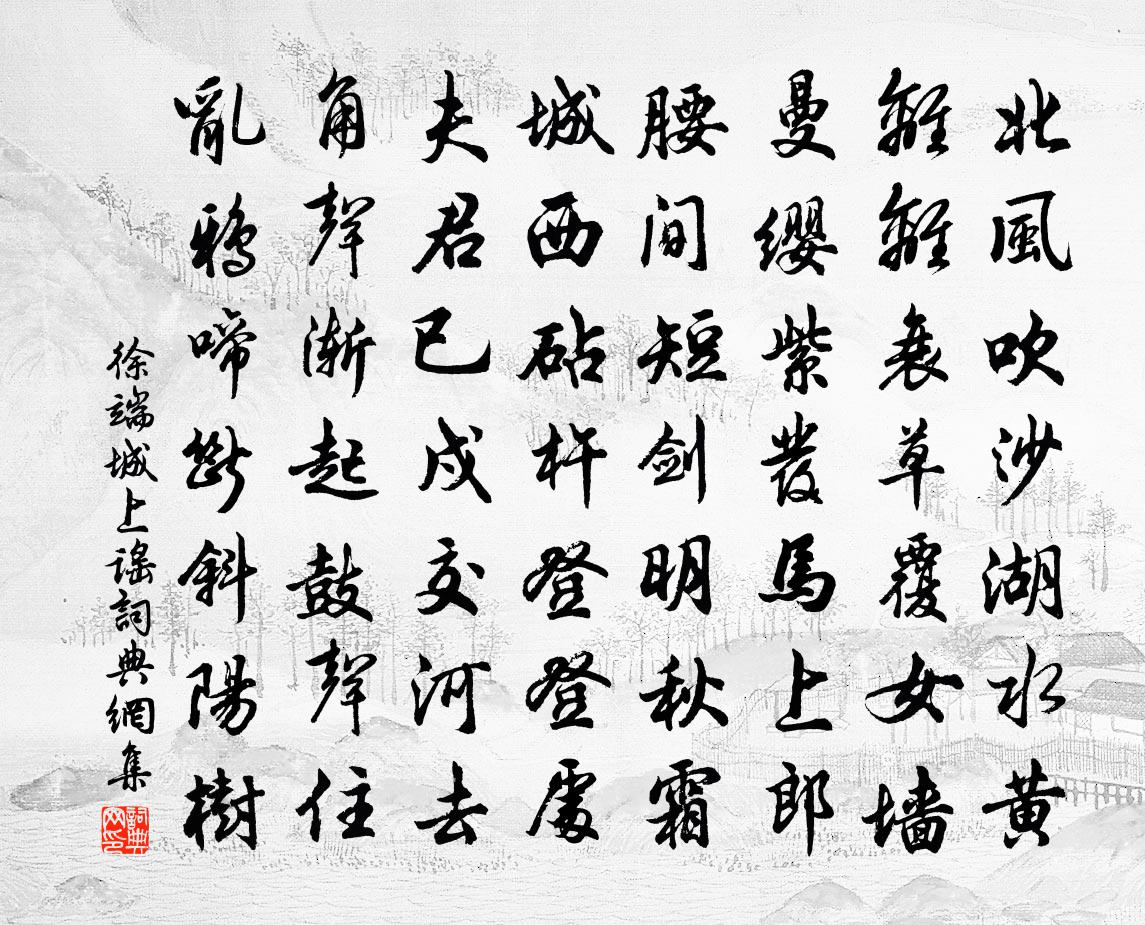 北風吹沙湖水黄
離離衰草覆女墙
曼纓紫發馬上郎
腰間短剑明秋霜
城西砧杵登登處
夫君已戍交河去
角聲漸起鼓聲住
亂鴉啼斷斜陽樹
徐端城上謡詞典網集
詞典网印